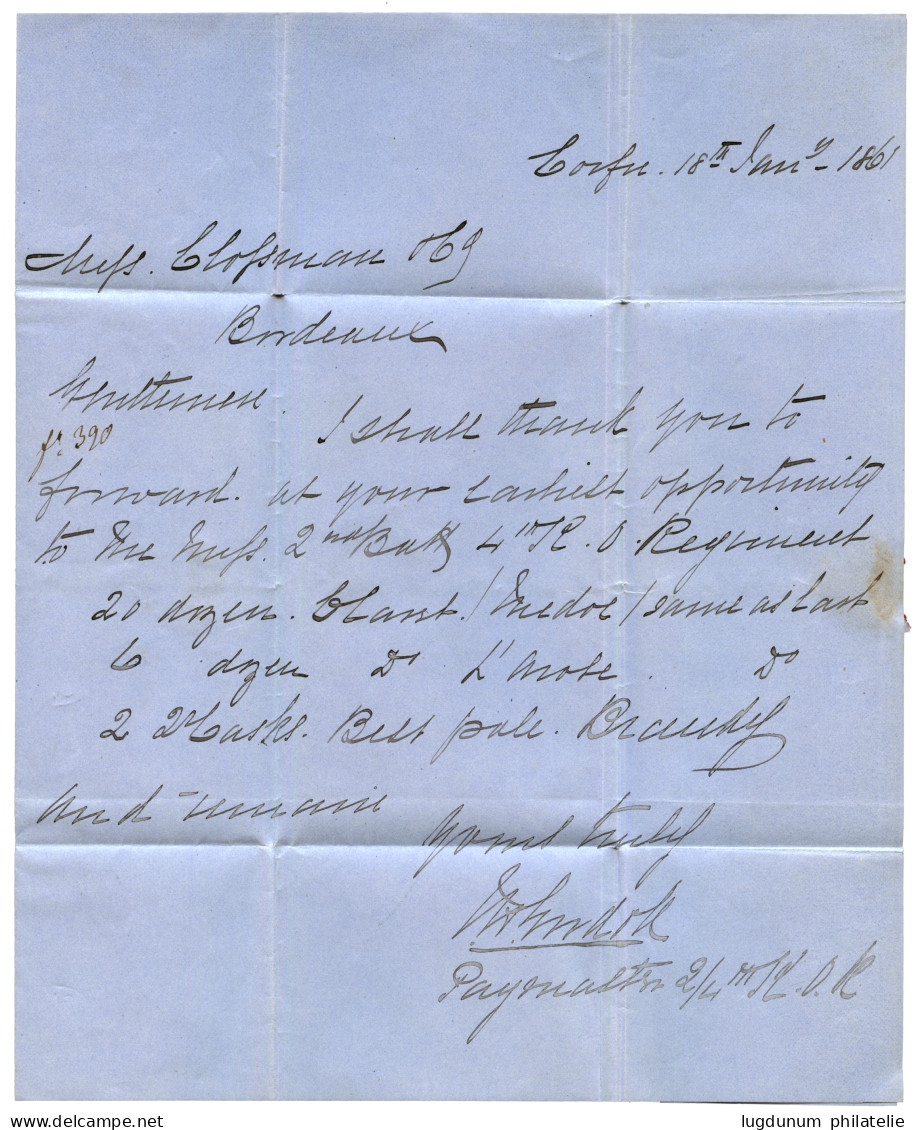 Corfu. 18th Jany 1861
Messs. Clossman & Co
Bordeaux
Gentlemen.
fr. 390
I shall thank you to
forward. at your earliest opportunity
to the Mess. 2nd Batt 4th K. O. Regiment
20 dozen. Claret / Medoc / same as last
6 dozen Do L'arose. Do
2 Casks. Best pale. Brandy
and remain
yours truly
Paymaster 2/4th K. O. R
lugdunum philatelie